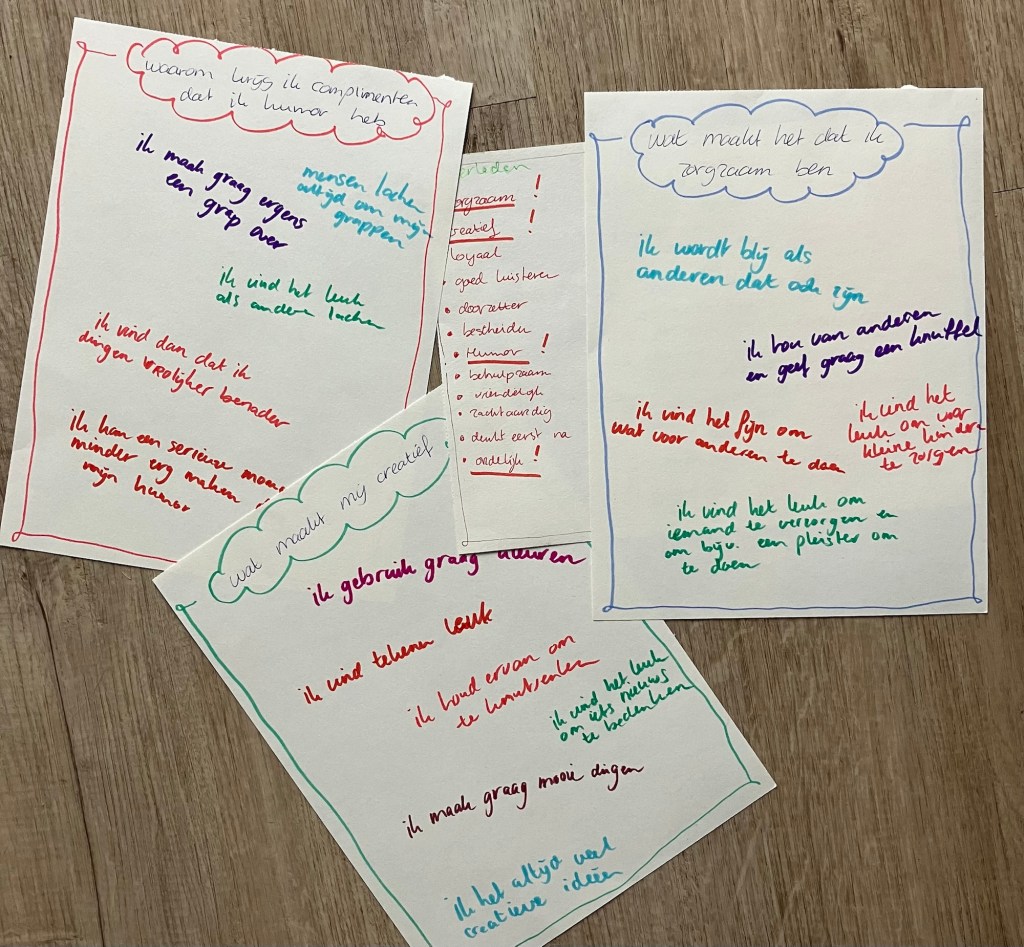 waarom krijg ik complimenten
dat ik humor heb
ik maak graag ergens
een grap over
mensen lachen
altijd om mijn
grappen
ik vind het leuk
als anderen lachen
ik vind dan dat ik
dingen vrolijker benader
ik kan een serieuze
minder erg maken
mijn humor
zorgzaam !
creatief !
loyaal
goed luisteren
doorzetter
bescheiden
Humor !
behulpzaam
vriendelijk
zachtaardig
denkt eerst na
!
wat maakt het dat ik
zorgzaam ben
ik wordt blij als
anderen dat ook zijn
ik hou van anderen
en geef graag een knuffel
ik vind het fijn om
wat voor anderen te doen
ik vind het
leuk om voor
kleine kinderen
te zorgen
ik vind het leuk om
iemand te verzorgen en
om bijv. een pleister om
te doen
wat maakt mij creatief
ik gebruik graag kleuren
ik vind tekenen leuk
ik houd ervan om
te knutselen
ik vind het leuk
om iets nieuws
te bedenken
ik maak graag mooie dingen
ik heb altijd veel
creatieve ideeën